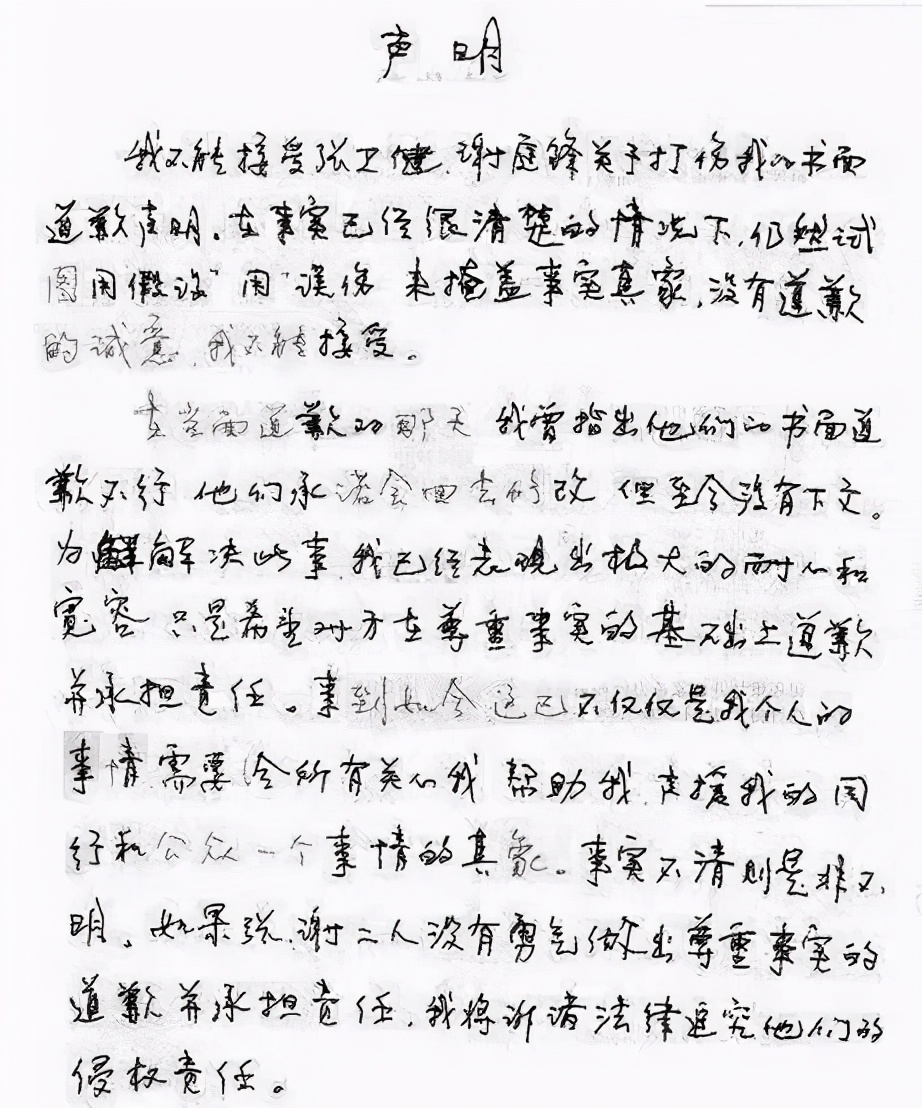 声明
我不能接受张卫健、谢庭锋关于打伤我的书面
道歉声明。在事实已经很清楚的情况下,仍然试
图用假设"用"误伤 来掩盖事实真象,没有道歉
的诚意,我不能接受。
在当面道歉的那天 我曾指出他们的书面道
歉不行 他们承诺会回去修改 但至今没有下文。
为解决此事,我已经表现出极大的耐心和
宽容 只是希望对方在尊重事实的基础上道歉
并承担责任。事到如今这已不仅仅是我个人的
事情,需要给所有关心我 帮助我,声援我的同
行和公众一个事情的真象。事实不清则是非不
明。如果张、谢二人没有勇气做出尊重事实的
道歉并承担责任,我将诉诸法律追究他们的
侵权责任。